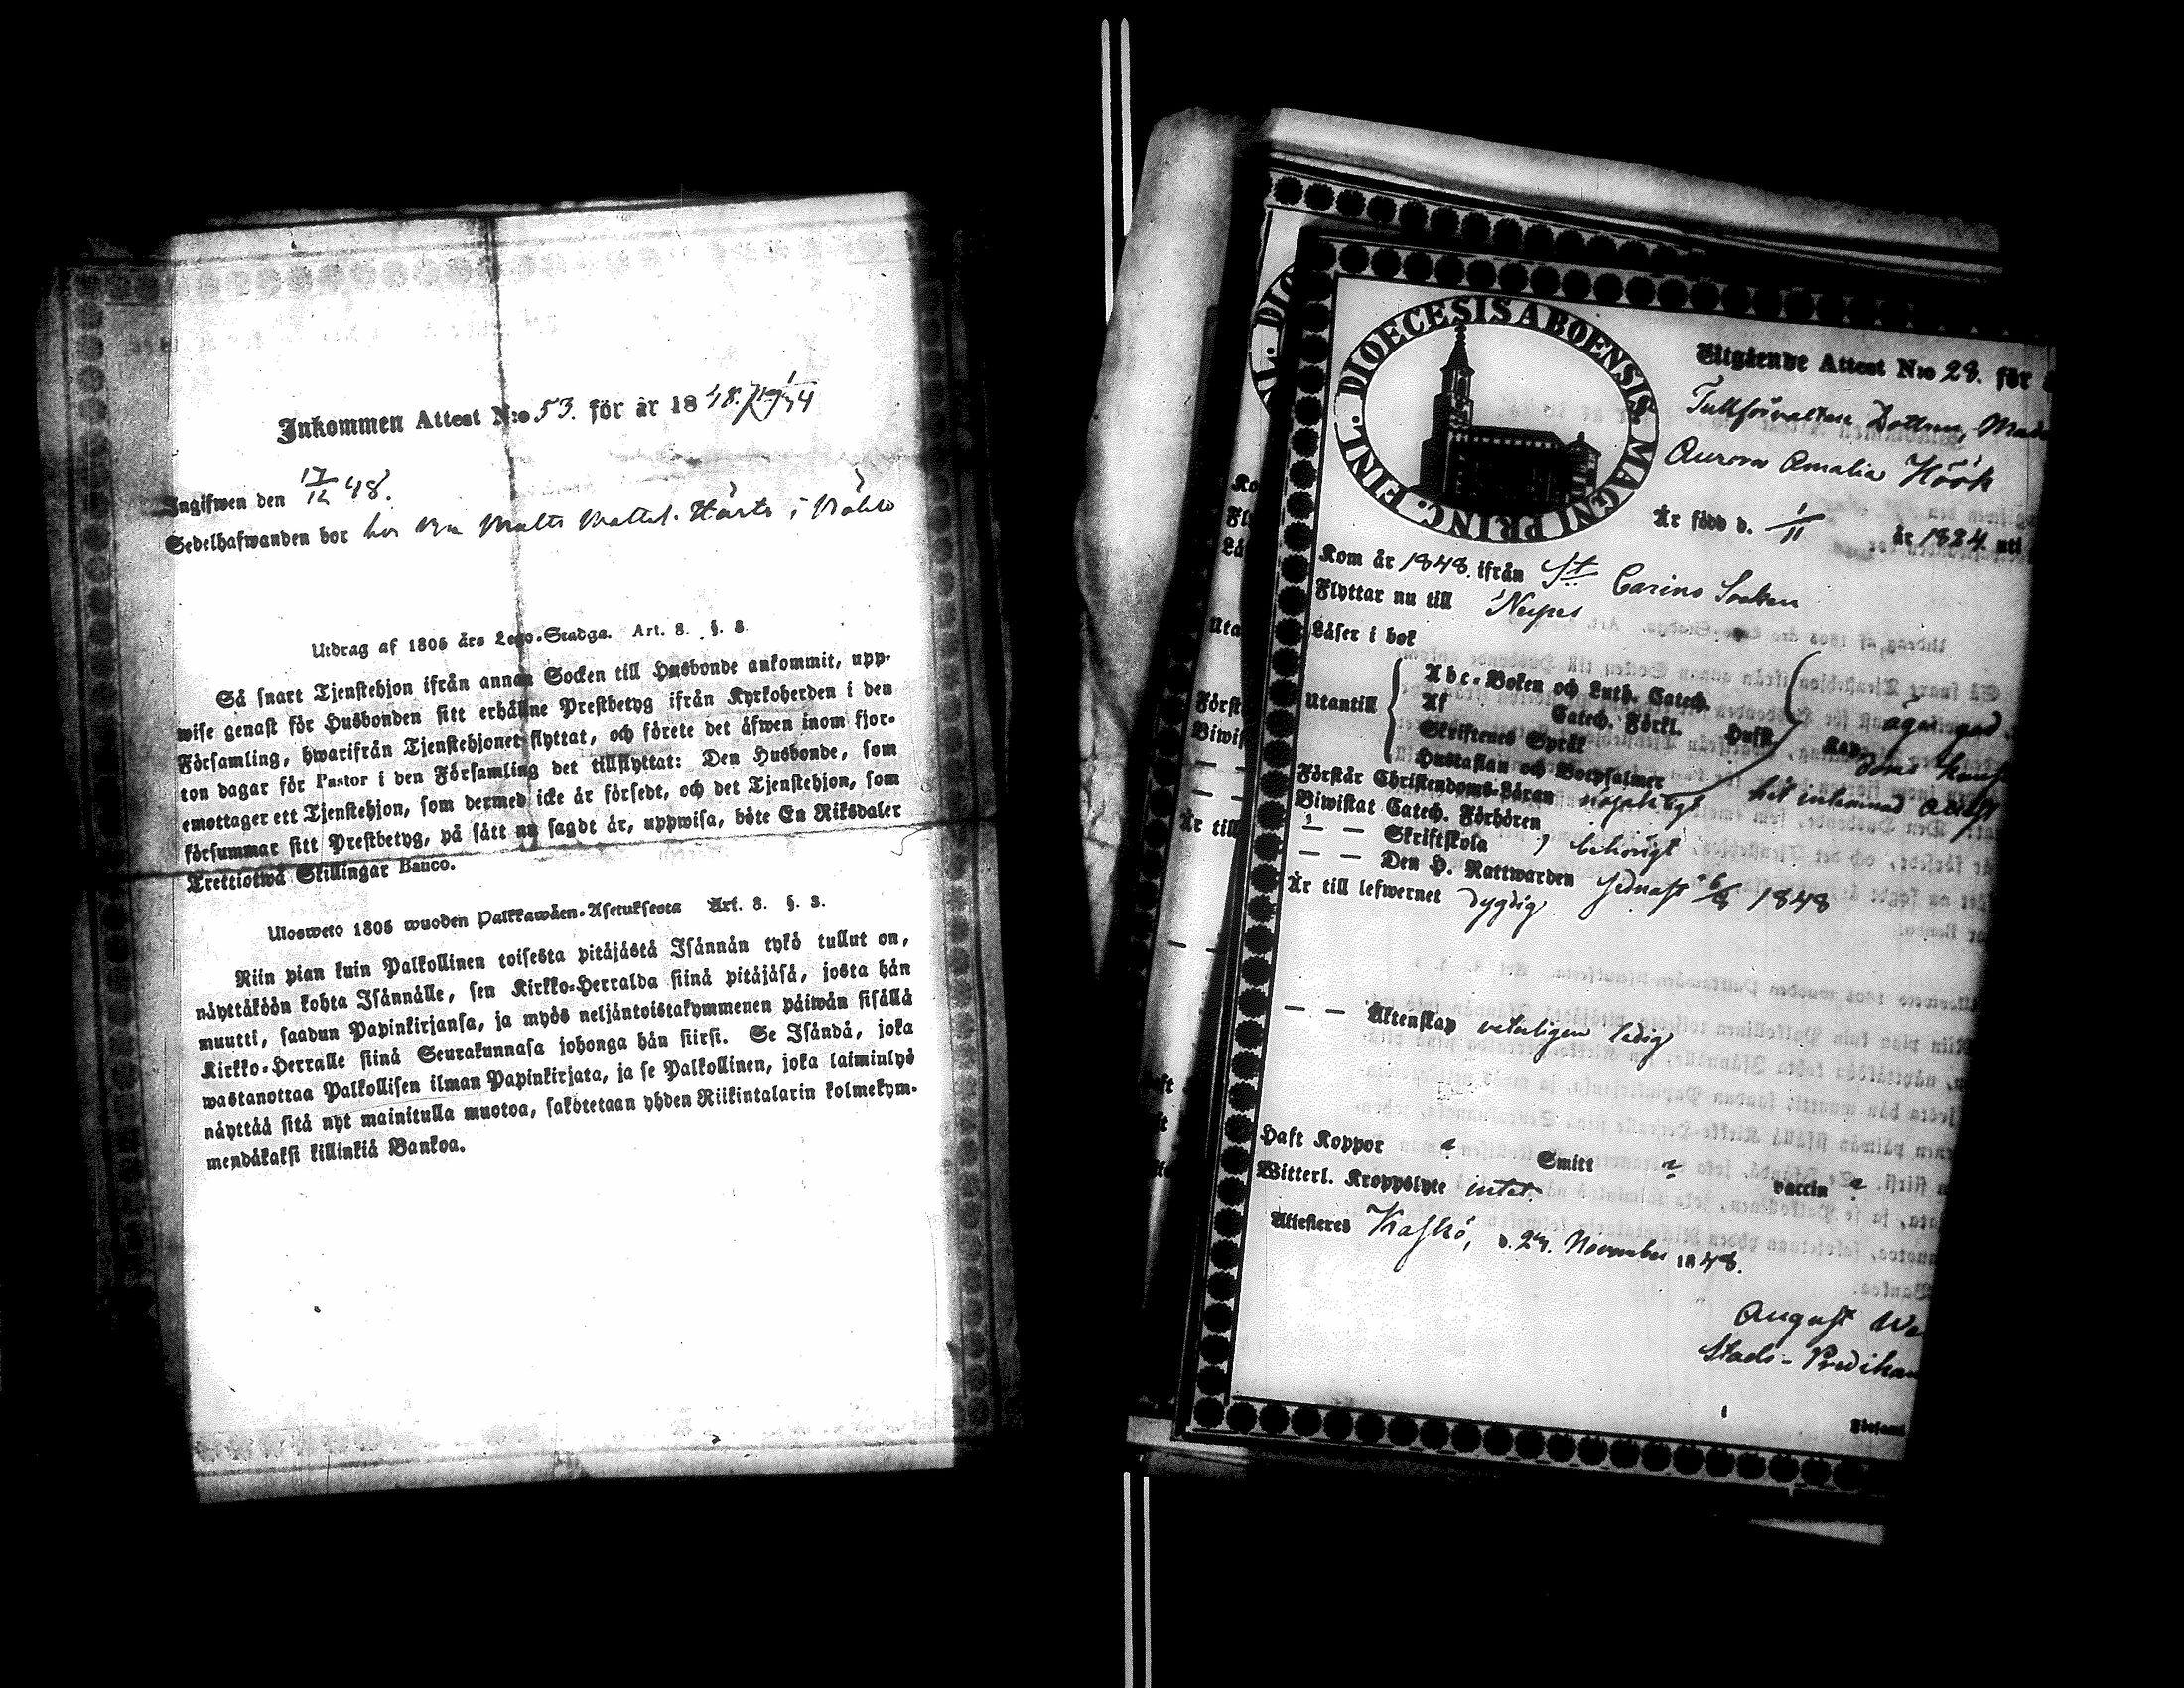 Inkommen Attest N:o 53. för år 1848.
Ingifwen den 17/12 48.
Sedelhafwanden bor hos Matts Mattss. i
Utdrag af 1805 års Lego-Stadga. Art. 8. §. 3.
Så snart Tjenstehjon ifrån annan Socken till Husbonde ankommit, upp-
wise genast för Husbonden sitt erhållne Prestbetyg ifrån Kyrkoherden i den
Församling, hwarifrån Tjenstehjonet flyttat, och förete det äfwen inom fjor-
ton dagar för Pastor i den Församling det tillflyttat: Den Husbonde, som
emottager ett Tjenstehjon, som dermed icke är försedt, och det Tjenstehjon, som
försummar sitt Prestbetyg, på sätt nu sagdt är, uppwisa, böte En Riksdaler
Trettiotwå Skillingar Banco.
Ulosweto 1805 wuoden Palkkawäen-Asetuksesta Art. 8. §. 3.
Niin pian kuin Palkollinen toisesta pitäjästä Isännän tykö tullut on,
näyttäköön kohta Isännälle, sen Kirkko-Herralda siinä pitäjäsä, josta hän
muutti, saadun Papinkirjansa, ja myös neljäntoistakymmenen päiwän sisällä
Kirkko-Herralle siinä Seurakunnasa johonga hän siirsi. Se Isändä, joka
wastanottaa Palkollisen ilman Papinkirjata, ja se Palkollinen, joka laiminlyö
näyttää sitä nyt mainitulla muotoa, sakotetaan yhden Riikintalarin kolmekym-
mendäkaksi killinkiä Bankoa.
FINL. DIOECESIS ABOENSIS. MAGNI PRINC.
Utgående Attest N:o 28. för
Tullförvaltare Dottren,
Aurora Amalia Höök
Är född d. 1/11 år 1824 uti
Kom år 1848. ifrån St Carins Socken
Flyttar nu till Nerpes
Läser i bok
Utantill
Abc-Boken och Luth. Catech.
Af Catech. Förkl. Huff. Kap.
Skriftenes Språk
Hustaflan och Botpsalmer
Förstår Christendoms-Läran nöjaktigt
Biwistat Catech. Förhören
— — Skriftskola behörigt
— — Den H. Nattwarden sednast 6/8 1848
Är till lefwernet dygdig
— — Äktenskap veterligen ledig
Haft Koppor Smitt vaccin
Witterl. Kroppslyte intet.
Attesteres Kaskö, d. 24. November 1848.
August
Stads-Predikan